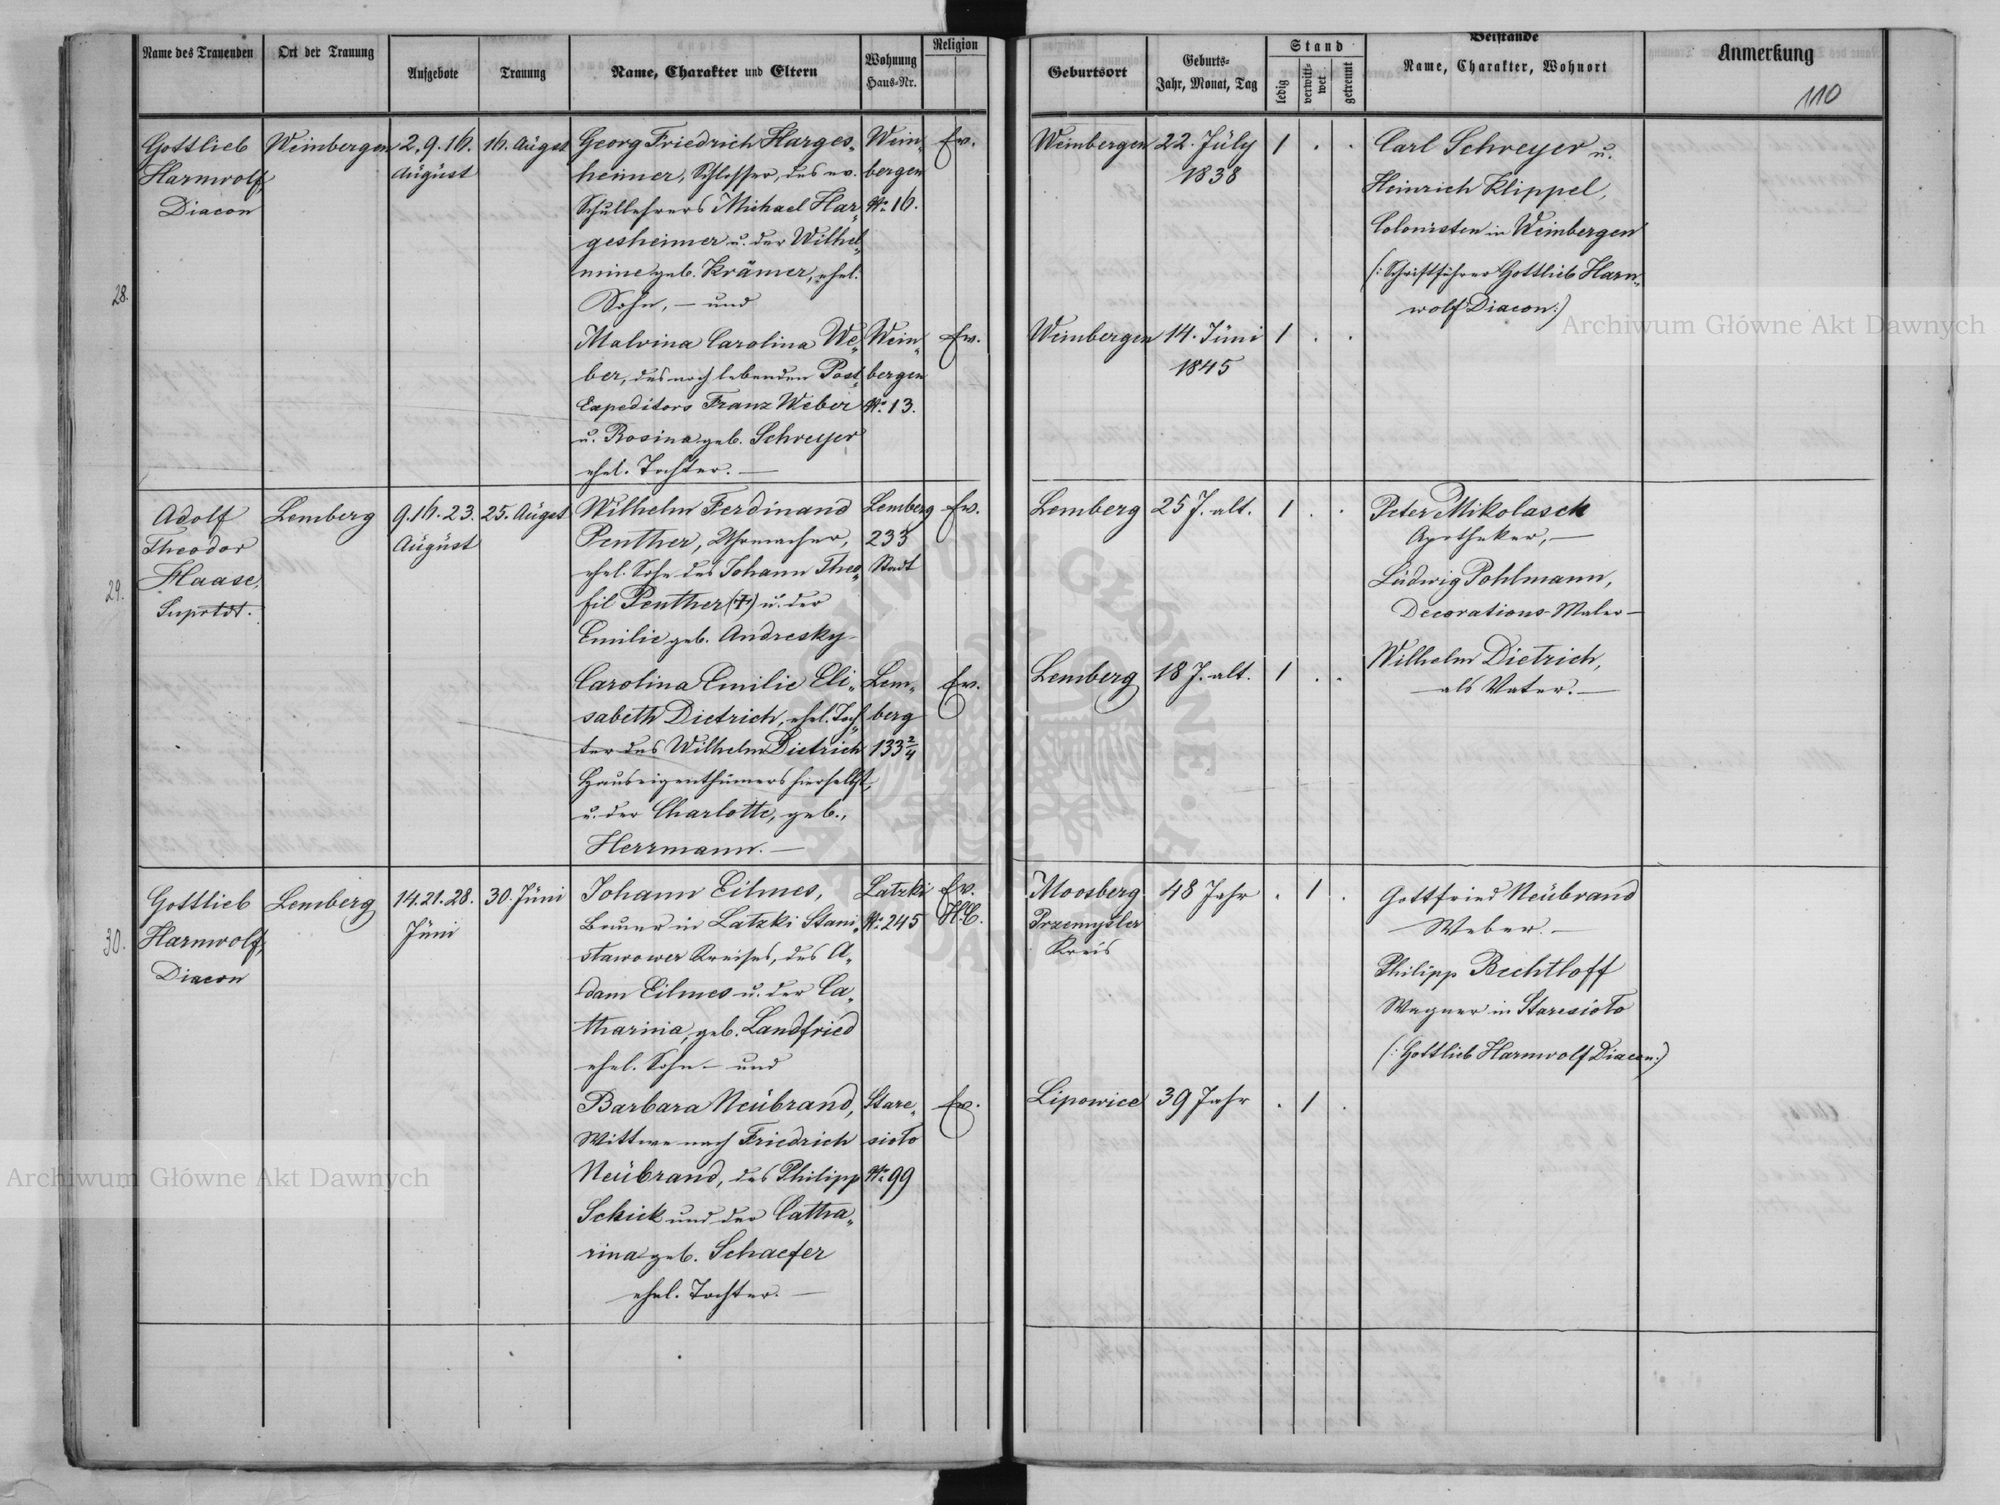 Name des Trauenden
Ort der Trauung
Aufgebote
Trauung
Name, Charakter und Eltern
Wohnung
Haus-Nr.
Religion
Geburtsort
Geburts-
Jahr, Monat, Tag
Stand
ledig
verwitt-
wet
getrennt
Beistände
Name, Charakter, Wohnort
Anmerkung
110
28.
Gottlieb
Harnwolf,
Diacon
Weinbergen
2. 9. 16.
August
16. August
Georg Friedrich Harges„
heimer, Schlosser, des ev.
Schullehrers Michael Har„
gesheimer u. der Wilhel„
mine geb. Krämer, ehel.
Sohn, — und
Wein„
bergen
Nr. 16.
Ev.
Weinbergen
22. July
1838
1 . .
Carl Schreyer u.
Heinrich Klippel,
Colonisten in Weinbergen
(: Schriftführer Gottlieb Harn„
wolf Diacon:)
Malvina Carolina We„
ber, des noch lebenden Post„
Expeditors Franz Weber
u. Rosina geb. Schreyer
ehel. Tochter. —
Wein„
bergen
Nr. 13.
Ev.
Weinbergen
14. Juni
1845
1 . .
29.
Adolf
Theodor
Haase,
Suprtdt.
Lemberg
9. 16. 23.
August
25. August
Wilhelm Ferdinand
Penther, Uhrmacher,
ehel. Sohn des Johann Theo„
fil Penther (†) u. der
Emilie geb. Andresky
Lemberg
233
Stadt
Ev.
Lemberg
25 J. alt.
1 . .
Peter Mikolasch
Apotheker, —
Ludwig Pohlmann,
Decorations-Maler —
Wilhelm Dietrich,
als Vater. —
Carolina Emilie Eli„
sabeth Dietrich, ehel. Toch„
ter des Wilhelm Dietrich
Hauseigenthümers hierselbst,
u. der Charlotte, geb.,
Herrmann. —
Lem„
berg
133 2/4
Ev.
Lemberg
18 J. alt.
1 . .
30.
Gottlieb
Harnwolf,
Diacon
Lemberg
14. 21. 28.
Juni
30. Juni
Johann Eilmes,
Bauer in Latzki Stani„
slawower Kreises, des A„
dam Eilmes u. der Ca„
tharina, geb. Landfried
ehel. Sohn — und
Latzki
Nr. 245
Ev.
H.C.
Moosberg
Przemysler
Kreis
48 Jahr
. 1 .
Gottfried Neubrand
Weber. —
Philipp Bechtloff
Wagner in Staresioto
(: Gottlieb Harnwolf Diacon:)
Barbara Neubrand,
Wittwe nach Friedrich
Neubrand, des Philipp
Schick und der Catha„
rina geb. Schaefer
ehel. Tochter. —
Stare„
sioto
Nr. 99
Ev.
Lipowice
39 Jahr
. 1 .
Archiwum Główne Akt Dawnych
Archiwum Główne Akt Dawnych